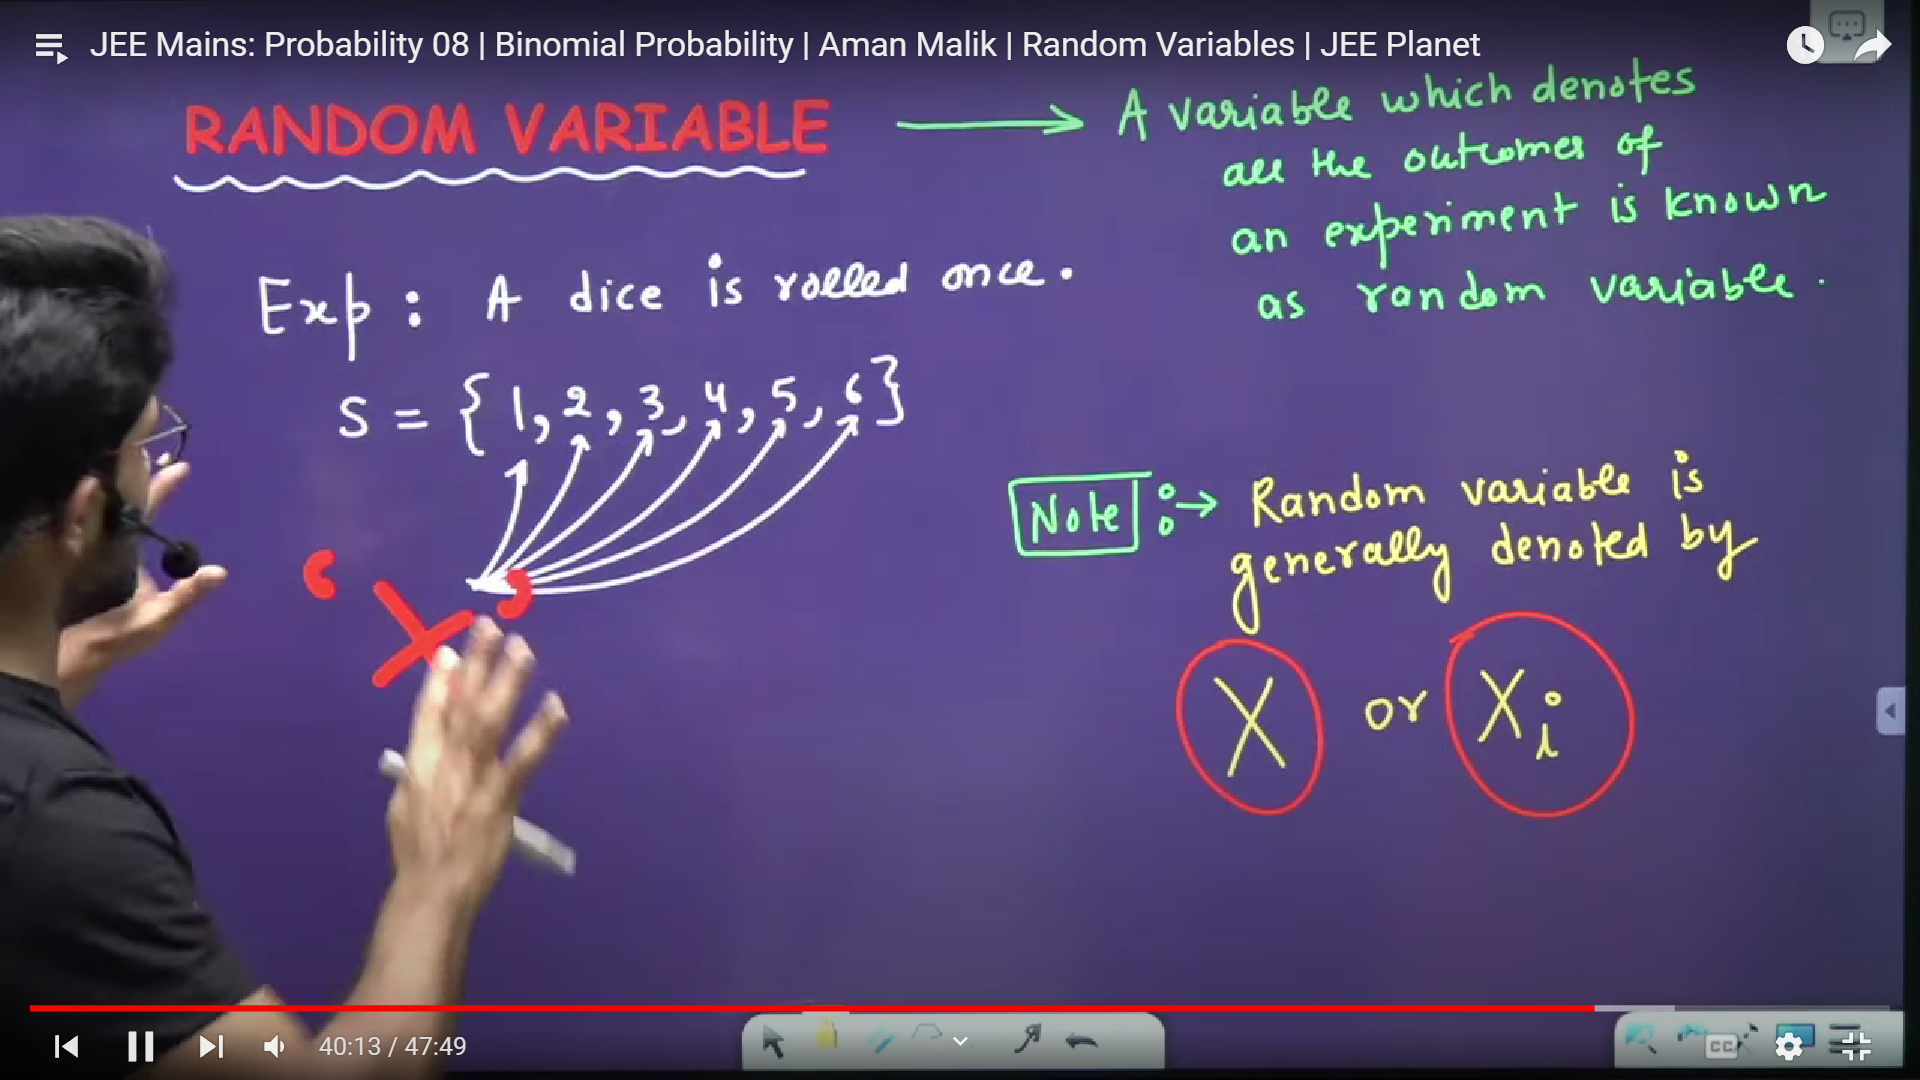 JEE Mains: Probability 08 | Binomial Probability | Aman Malik | Random Variables | JEE Planet
RANDOM VARIABLE
A variable which denotes
all the outcomes of
an experiment is known
as random variable.
Exp : A dice is rolled once.
S = {1, 2, 3, 4, 5, 6}
‘ X ’
Note :→ Random variable is
generally denoted by
X or Xi
40:13 / 47:49
CC